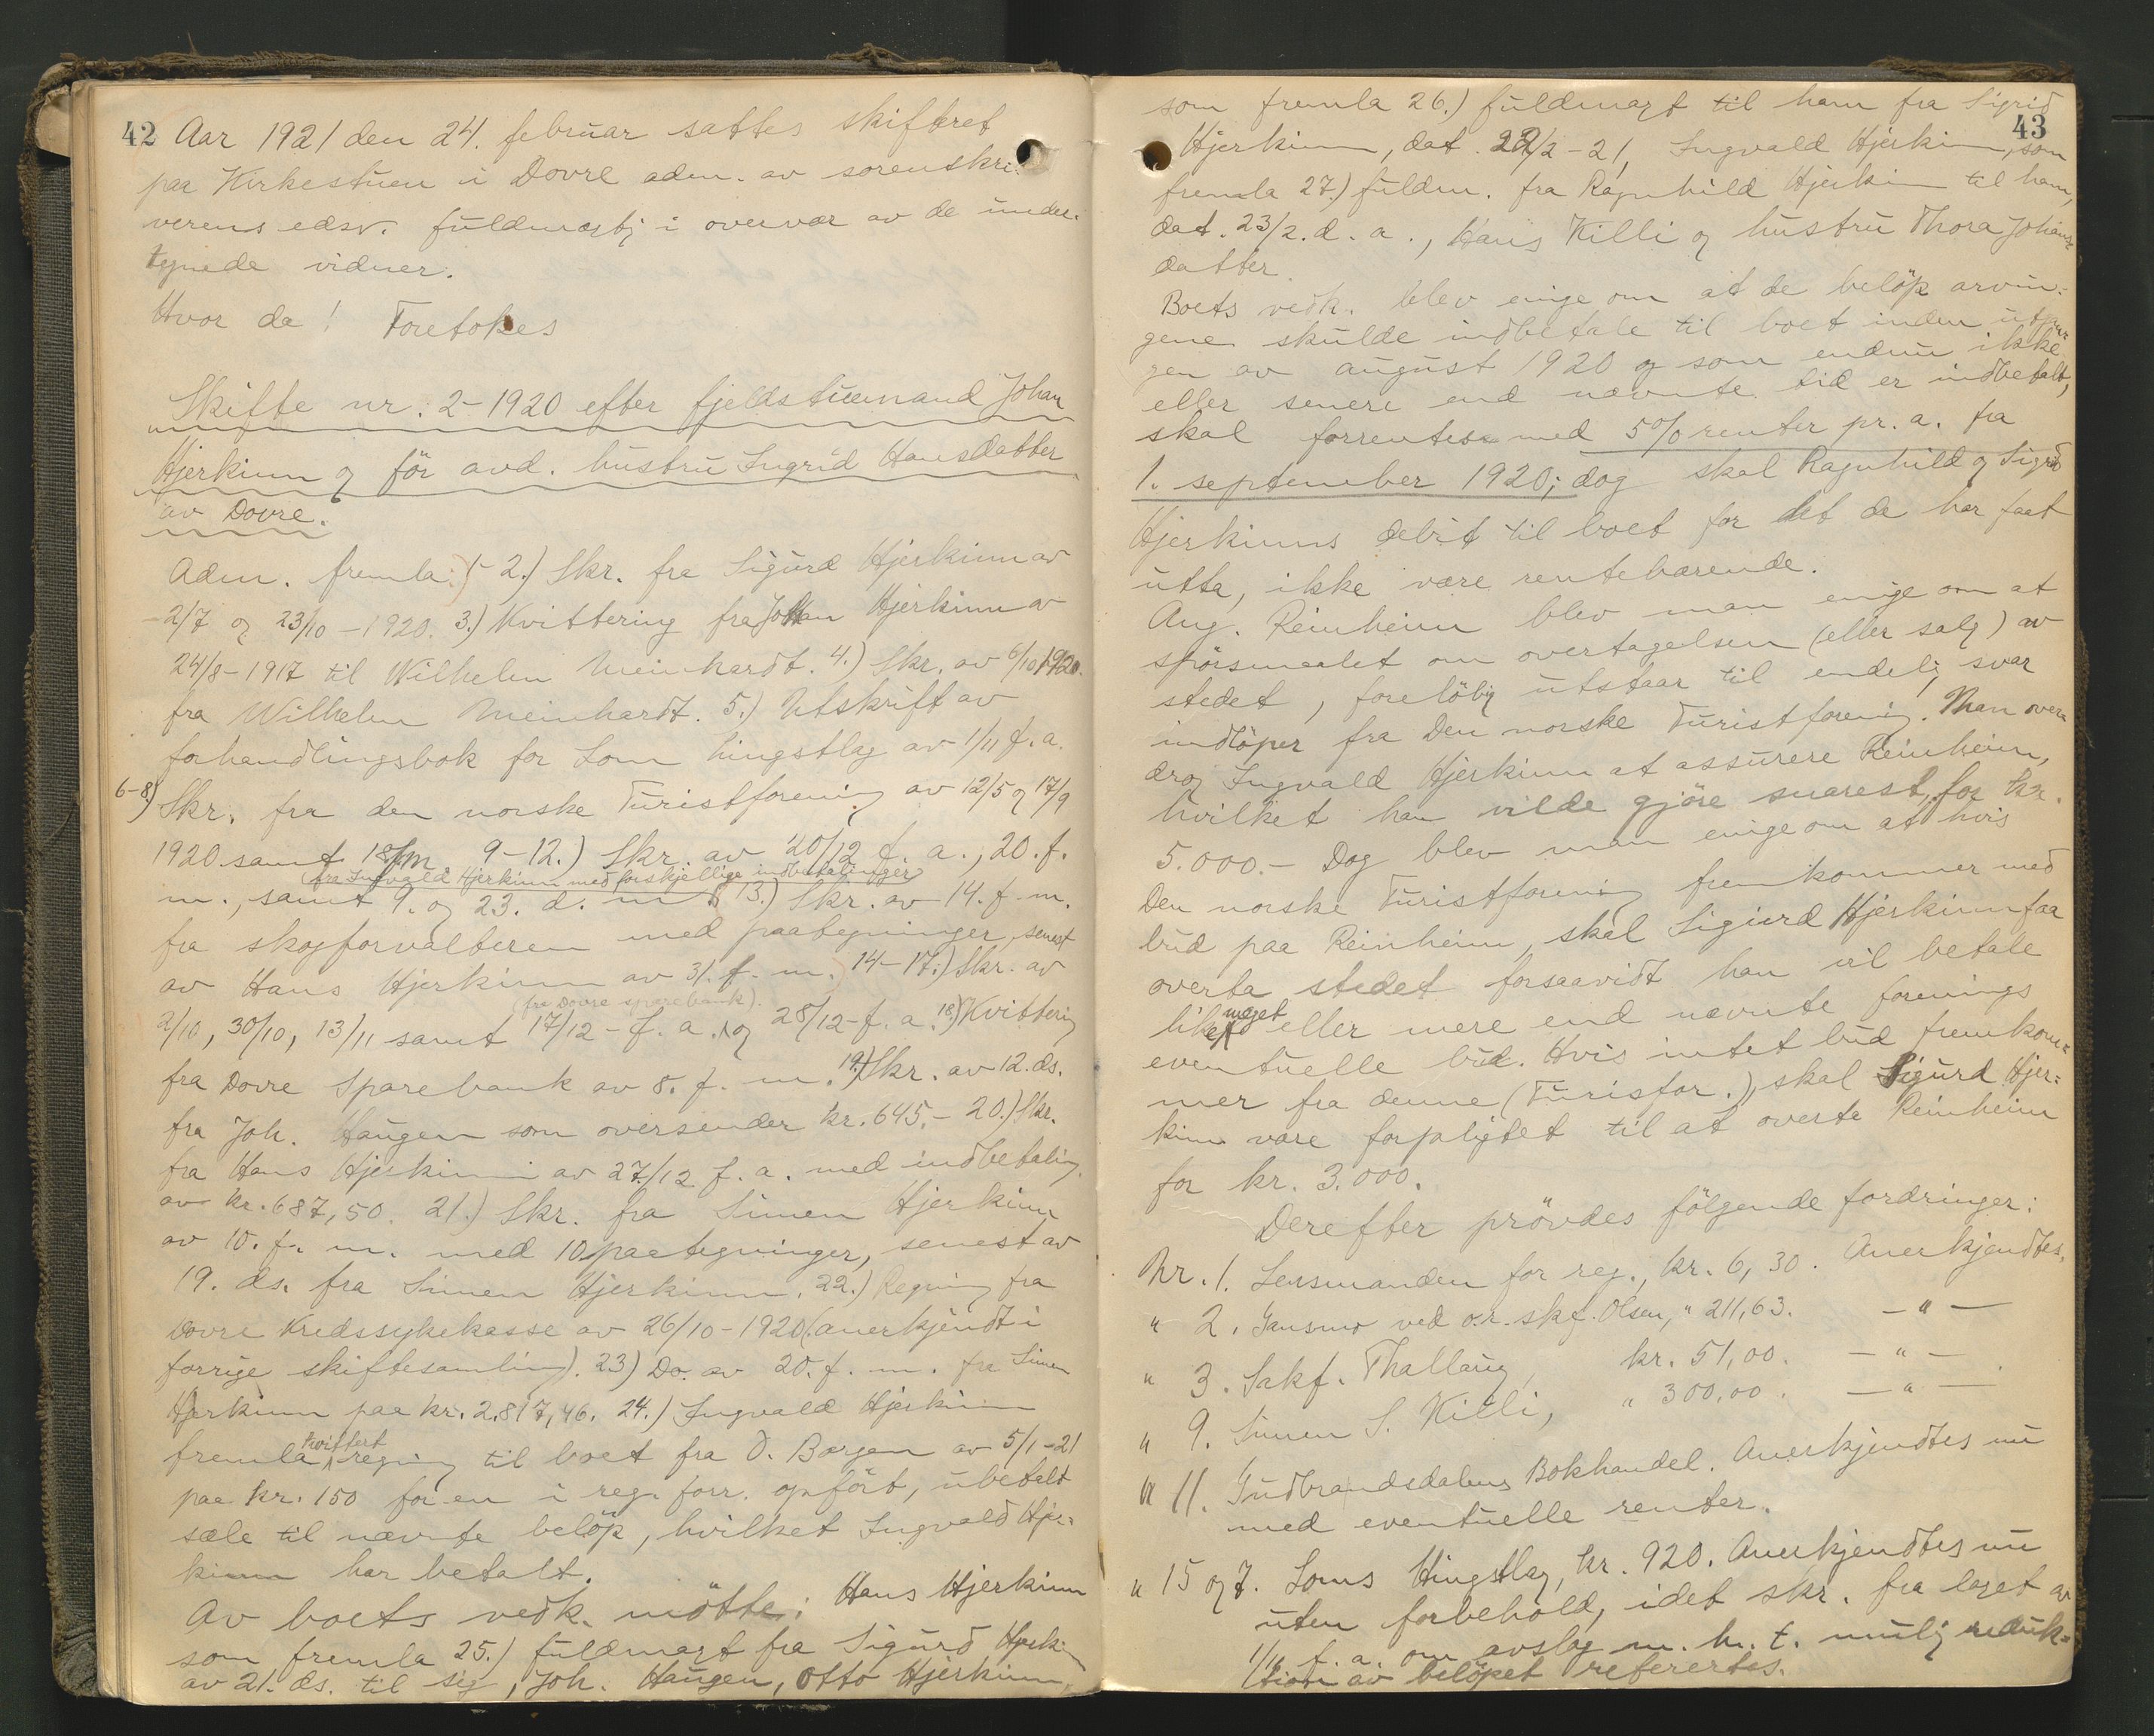 42 Aar 1921 den 24. februar sattes skifteret
paa Kirkestuen i Dovre adm. av sorenskri-
verens edsv. fuldmægtig i overvær av de under-
tegnede vidner.
Hvor da! Foretokes
Skifte nr. 2-1920 efter fjeldstuemand Johan
Hjerkinn og för avd. hustru Ingrid Hansdatter
av Dovre.
Adm. fremla: 1-2.) Skr. fra Sigurd Hjerkinn av
2/7 og 23/10-1920. 3.) Kvittering fra Johan Hjerkinn av
24/8-1917 til Wilhelm Meinhardt. 4.) Skr. av 6/10 1920.
fra Wilhelm Meinhardt. 5.) Utskrift av
forhandlingsbok for Lom hingstlag av 1/11 f. a.
6-8) Skr. fra den norske Turistforening av 12/5 og 17/9
1920 samt 18/fm. 9-12.) Skr. av 20/12 f. a., 20. f.
(fra Ingvald Hjerkinn med forskjellige indbetalinger)
m., samt 9. og 23. d. m. 13.) Skr. av 14. f. m.
fra skogforvalteren med paategninger, senest
av Hans Hjerkinn av 31. f. m. 14-17.) Skr. av
(fra Dovre sparebank).
2/10, 30/10, 13/11 samt 17/12-f. a. og 28/12-f. a. 18.) Kvittering
fra Dovre Sparebank av 8. f. m. 19.) Skr. av 12. ds.
fra Joh. Haugen som oversender kr. 645.- 20.) Skr.
fra Hans Hjerkinn av 27/12 f. a. med indbetaling
av kr. 687,50. 21.) Skr. fra Simen Hjerkinn
av 10. f. m. med 10 paategninger, senest av
19. ds. fra Simen Hjerkinn. 22.) Regning fra
Dovre Kredssykekasse av 26/10-1920 (anerkjendt i
forrige skiftesamling). 23) Do. av 20. f. m. fra Simen
Hjerkinn paa kr. 2.817,46. 24.) Ingvald Hjerkinn
kvittert
fremla regning til boet fra O. Borgen av 5/1-21
paa kr. 150 for en i reg. forr. opfört, ubetalt
sæle til nævnte belöp, hvilket Ingvald Hjer-
kinn har betalt.
Av boets vedk. mötte: Hans Hjerkinn
som fremla 25.) fuldmagt fra Sigurd Hjerkinn
av 21. ds. til sig, Joh. Haugen, Otto Hjerkinn,
43
som fremla 26.) fuldmagt til ham fra Sigrid
Hjerkinn, dat. 22/2-21, Ingvald Hjerkinn, som
fremla 27.) fuldm. fra Ragnhild Hjerkinn til ham,
dat. 23/2. d. a., Hans Killi og hustru Thora Johans-
datter.
Boets vedk. blev enige om at de belöp arvin-
gene skulde indbetale til boet inden utgan-
gen av august 1920 og som endnu ikke
eller senere end nævnte tid er indbetalt,
skal forrentes med 5% renter pr. a. fra
1. september 1920; dog skal Ragnhild og Sigrid
Hjerkinns debit til boet for det de har faat
utta, ikke være rentebærende.
Ang. Reinheim blev man enige om at
spörsmaalet om overtagelsen (eller salg) av
stedet, forelöbig utstaar til endelig svar
indlöper fra Den norske Turistforening. Man over-
drog Ingvald Hjerkinn at assurere Reinheim,
hvilket han vilde gjöre snarest, for kr.
5.000.- Dog blev man enige om at hvis
Den norske Turistforening fremkommer med
bud paa Reinheim, skal Sigurd Hjerkinn faa
overta stedet forsaavidt han vil betale
meget
like eller mere end nævnte forenings
eventuelle bud. Hvis intet bud fremkom-
mer fra denne (Turistfor.), skal Sigurd Hjer-
kinn være forpligtet til at overta Reinheim
for kr. 3.000.
Derefter prövdes fölgende fordringer:
Nr. 1. Lensmanden for reg., kr. 6,30. Anerkjendtes.
" 2. Jansmo ved o.r. skf. Olsen, " 211,63. -"-
" 3. Sakf. Thallaug, kr. 51,00. -"-
" 9. Simen S. Killi, " 300,00. -"-
" 11. Gudbrandsdalens Bokhandel. Anerkjendtes nu
med eventuelle renter.
" 15 og 7. Loms Hingstlag, kr. 920. Anerkjendtes nu
uten forbehold, idet skr. fra laget av
1/11 f. a. om avslag m. h. t. mulig reduk-
tion av belöpet refereres.